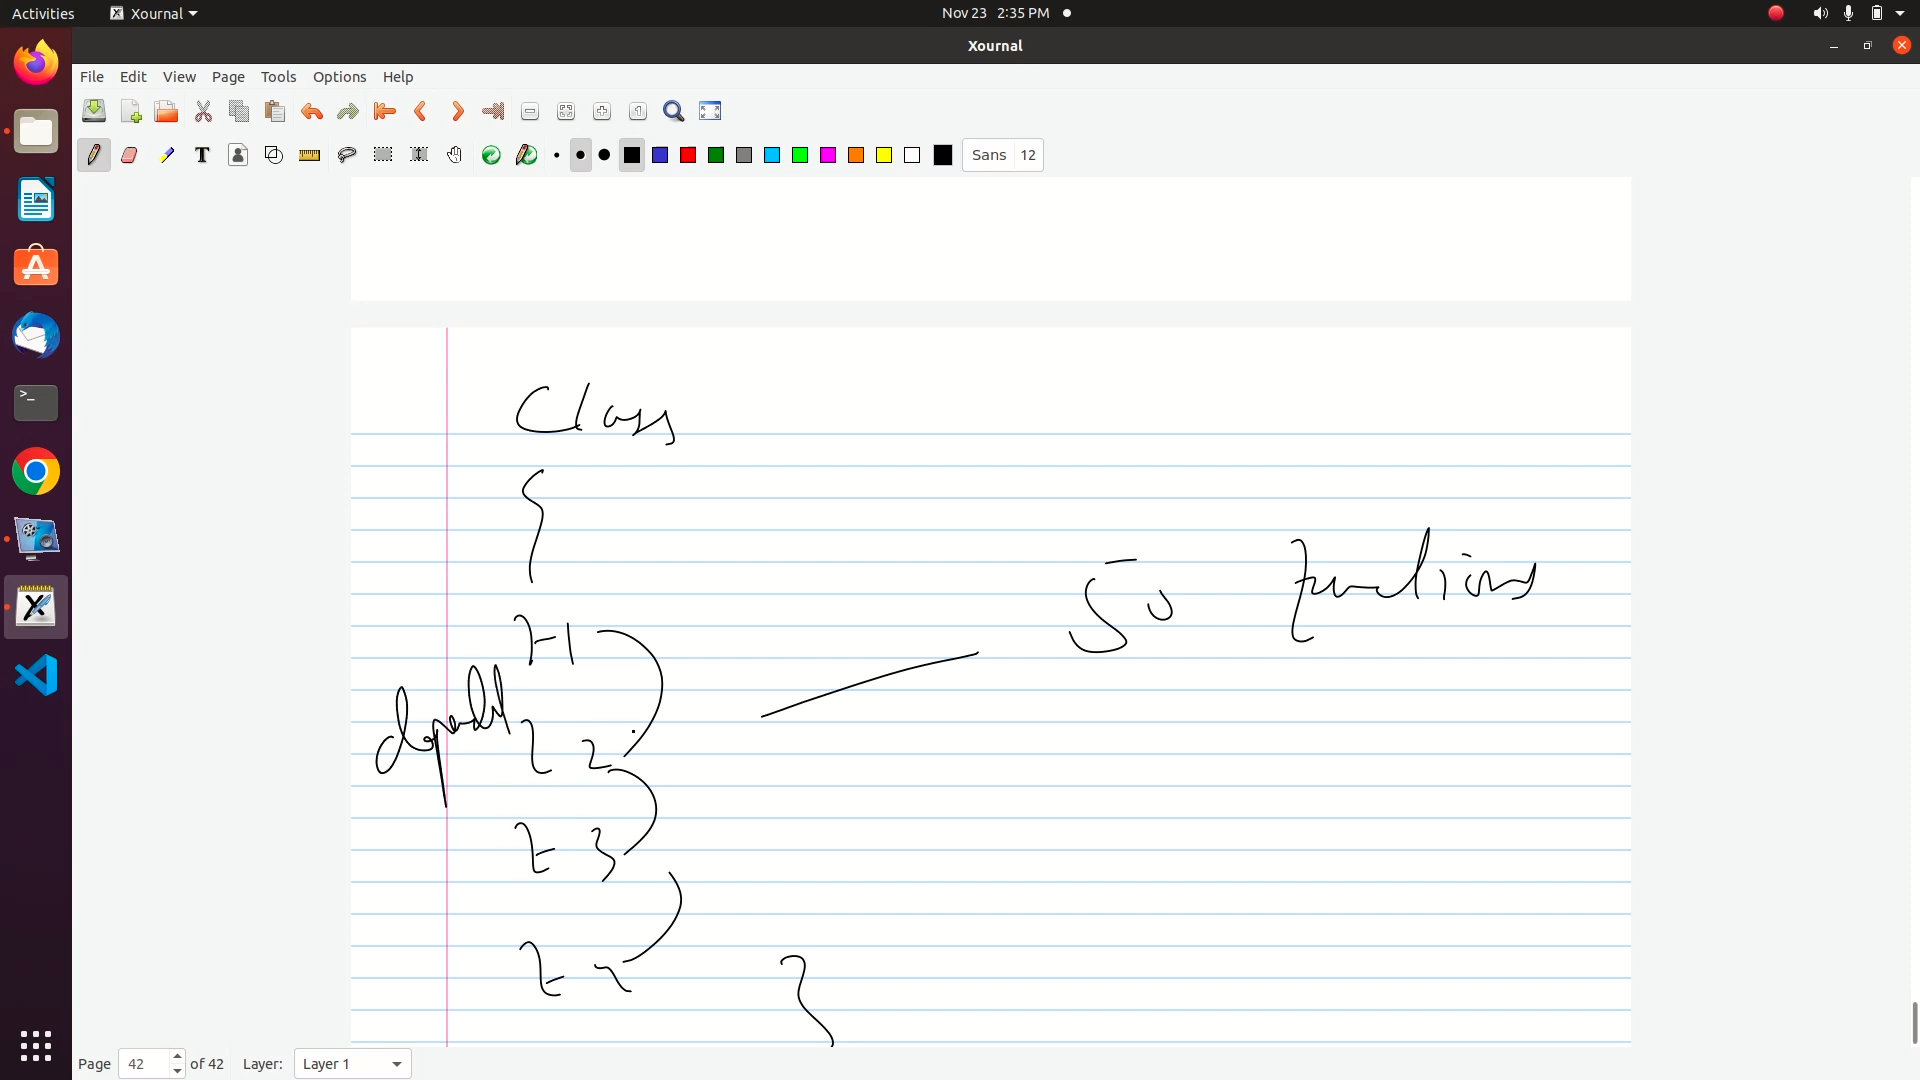 Activities Xournal Nov 23 2:35 PM
Xournal
File Edit View Page Tools Options Help
T Sans 12
Class
{
50 functions
F-1
F 2
F 3
F n
}
Page 42 of 42 Layer: Layer 1